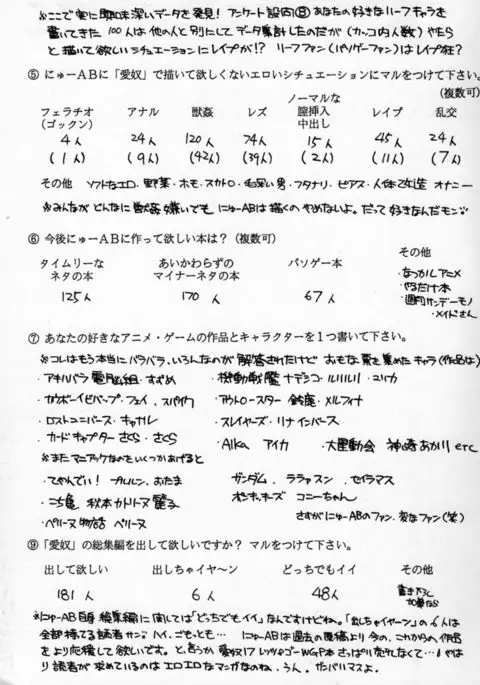 ※ここで実に興味深いデータを発見! アンケート設問⑧あなたの好きなリーフキャラを
書いてきた100人は他の人と別にしてデータ集計したのだが(カッコ内人数)やたら
と描いて欲しいシチュエーションにレイプが!? リーフファン(パソゲーファン)はレイプ狂?
⑤ にゅーABに「愛奴」で描いて欲しくないエロいシチュエーションにマルをつけて下さい。
(複数可)
フェラチオ(ゴックン) アナル 獣姦 レズ ノーマルな膣挿入中出し レイプ 乱交
4人 24人 120人 74人 15人 45人 24人
(1人) (9人) (42人) (39人) (2人) (11人) (7人)
その他 ソフトなエロ、野菜・ホモ・スカトロ・毛深い男・フタナリ・ピアス・人体改造 オナニー
※みんながどんなに獣姦嫌いでも にゅーABは描くのやめないよ。だって好きなんだモン
⑥ 今後にゅーABに作って欲しい本は?(複数可)
タイムリーなネタの本 あいかわらずのマイナーネタの本 パソゲー本 その他
125人 170人 67人
・なつかしアニメ
・やるだけ本
・週刊サンデーモノ
・メイドさん
⑦ あなたの好きなアニメ・ゲームの作品とキャラクターを1つ書いて下さい。
※コレはもう本当にバラバラ、いろんなのが解答されたけど おもな票を集めたキャラ(作品は)
・アキハバラ電脳組・すずめ ・機動戦艦ナデシコ・ルリルリ・ユリカ
・カウボーイビバップ・フェイ、スパイク ・アウトロースター 鈴鹿・メルフィナ
・ロストユニバース・キャナル ・スレイヤーズ・リナインバース
・カードキャプターさくら・さくら ・AIKa アイカ ・大運動会 神崎あかりetc
※またマニアックなのをいくつかあげると
・てやんでい! プルルン、おたま ガンダム、ララァスン、セイラマス
・こち亀 秋本カトリーヌ麗子 コニーちゃん
・ペリーヌ物語 ペリーヌ さすがにゅーABのファン、変なファン(笑)
⑨ 「愛奴」の総集編を出して欲しいですか? マルをつけて下さい。
出して欲しい 出しちゃイヤ〜ン どっちでもイイ その他
181人 6人 48人 書き下し
※にゅーAB自身 総集編に関しては「どっちでもイイ」なんですけどね。「出しちゃイヤーン」の6人は
全部持てる読者サン♡ハイ、ごもっとも… にゅーABは過去の原稿より今の、これからの作品
をより応援して欲しいです。
り読者が求めているのはエロエロなマンガなのね、うん。ガンバリマスよ。